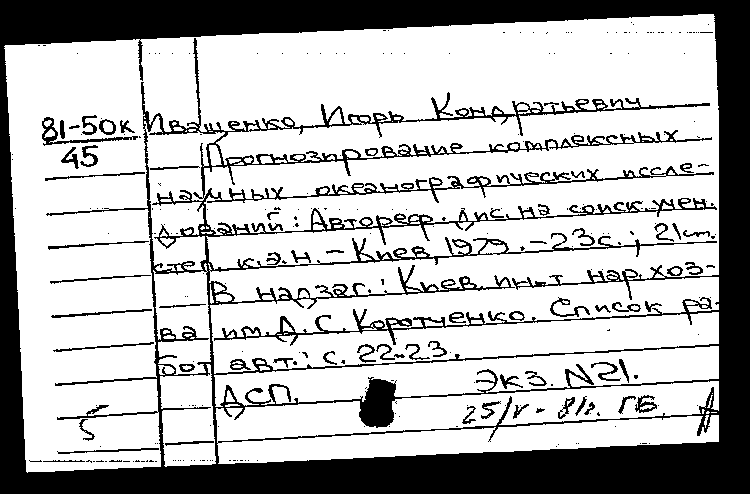 81-50к Иващенко, Игорь Кондратьевич
45 Прогнозирование комплексных
научных океанографических иссле-
дований: Автореф. дис. на соиск. учен.
степ. к.э.н. - Киев, 1979. - 23с.; 21см.
В надзаг.: Киев. ин-т нар. хоз-
ва им. Д. С. Коротченко. Список ра-
бот авт.: с. 22-23.
ДСП. Экз. N21.
5 25/V - 81г. ГБ.